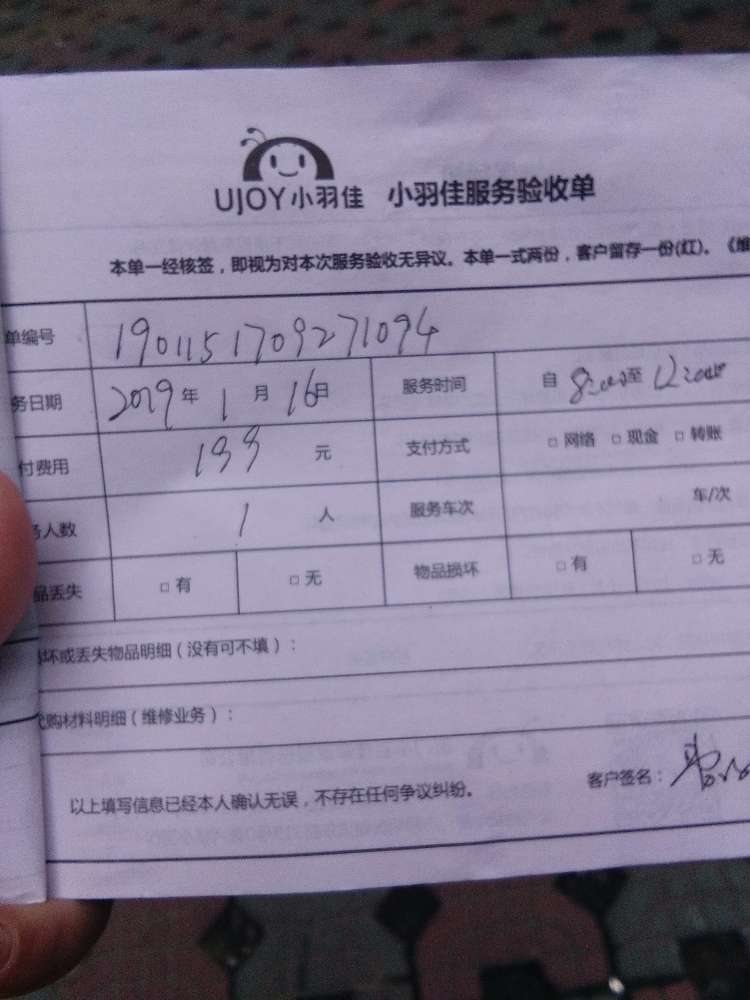 UJOY小羽佳 小羽佳服务验收单
本单一经核签，即视为对本次服务验收无异议。本单一式两份，客户留存一份(红)。《维
单编号 1901151709271094
务日期 2019年1月16日 服务时间 自 8:00至12:00
付费用 199元 支付方式 □ 网络 □ 现金 □ 转账
务人数 1人 服务车次 车/次
品丢失 □ 有 □ 无 物品损坏 □ 有 □ 无
损坏或丢失物品明细（没有可不填）：
代购材料明细（维修业务）：
以上填写信息已经本人确认无误，不存在任何争议纠纷。 客户签名：